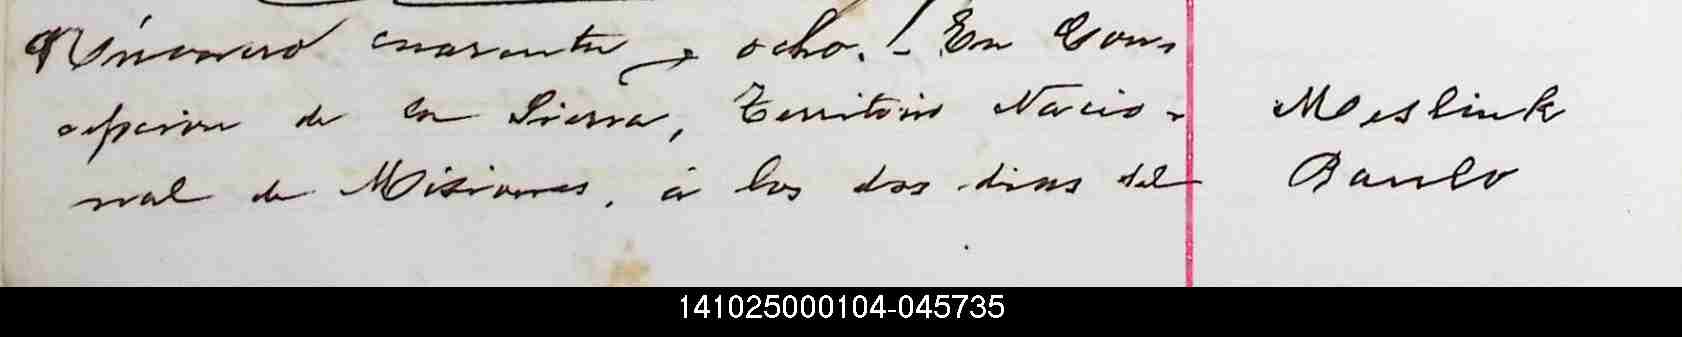 Número cuarenta y ocho. - En Con-
cepcion de la Sierra, Territorio Nacio-
nal de Misiones, á los dos dias del
Meslink
Paulo
141025000104-045735